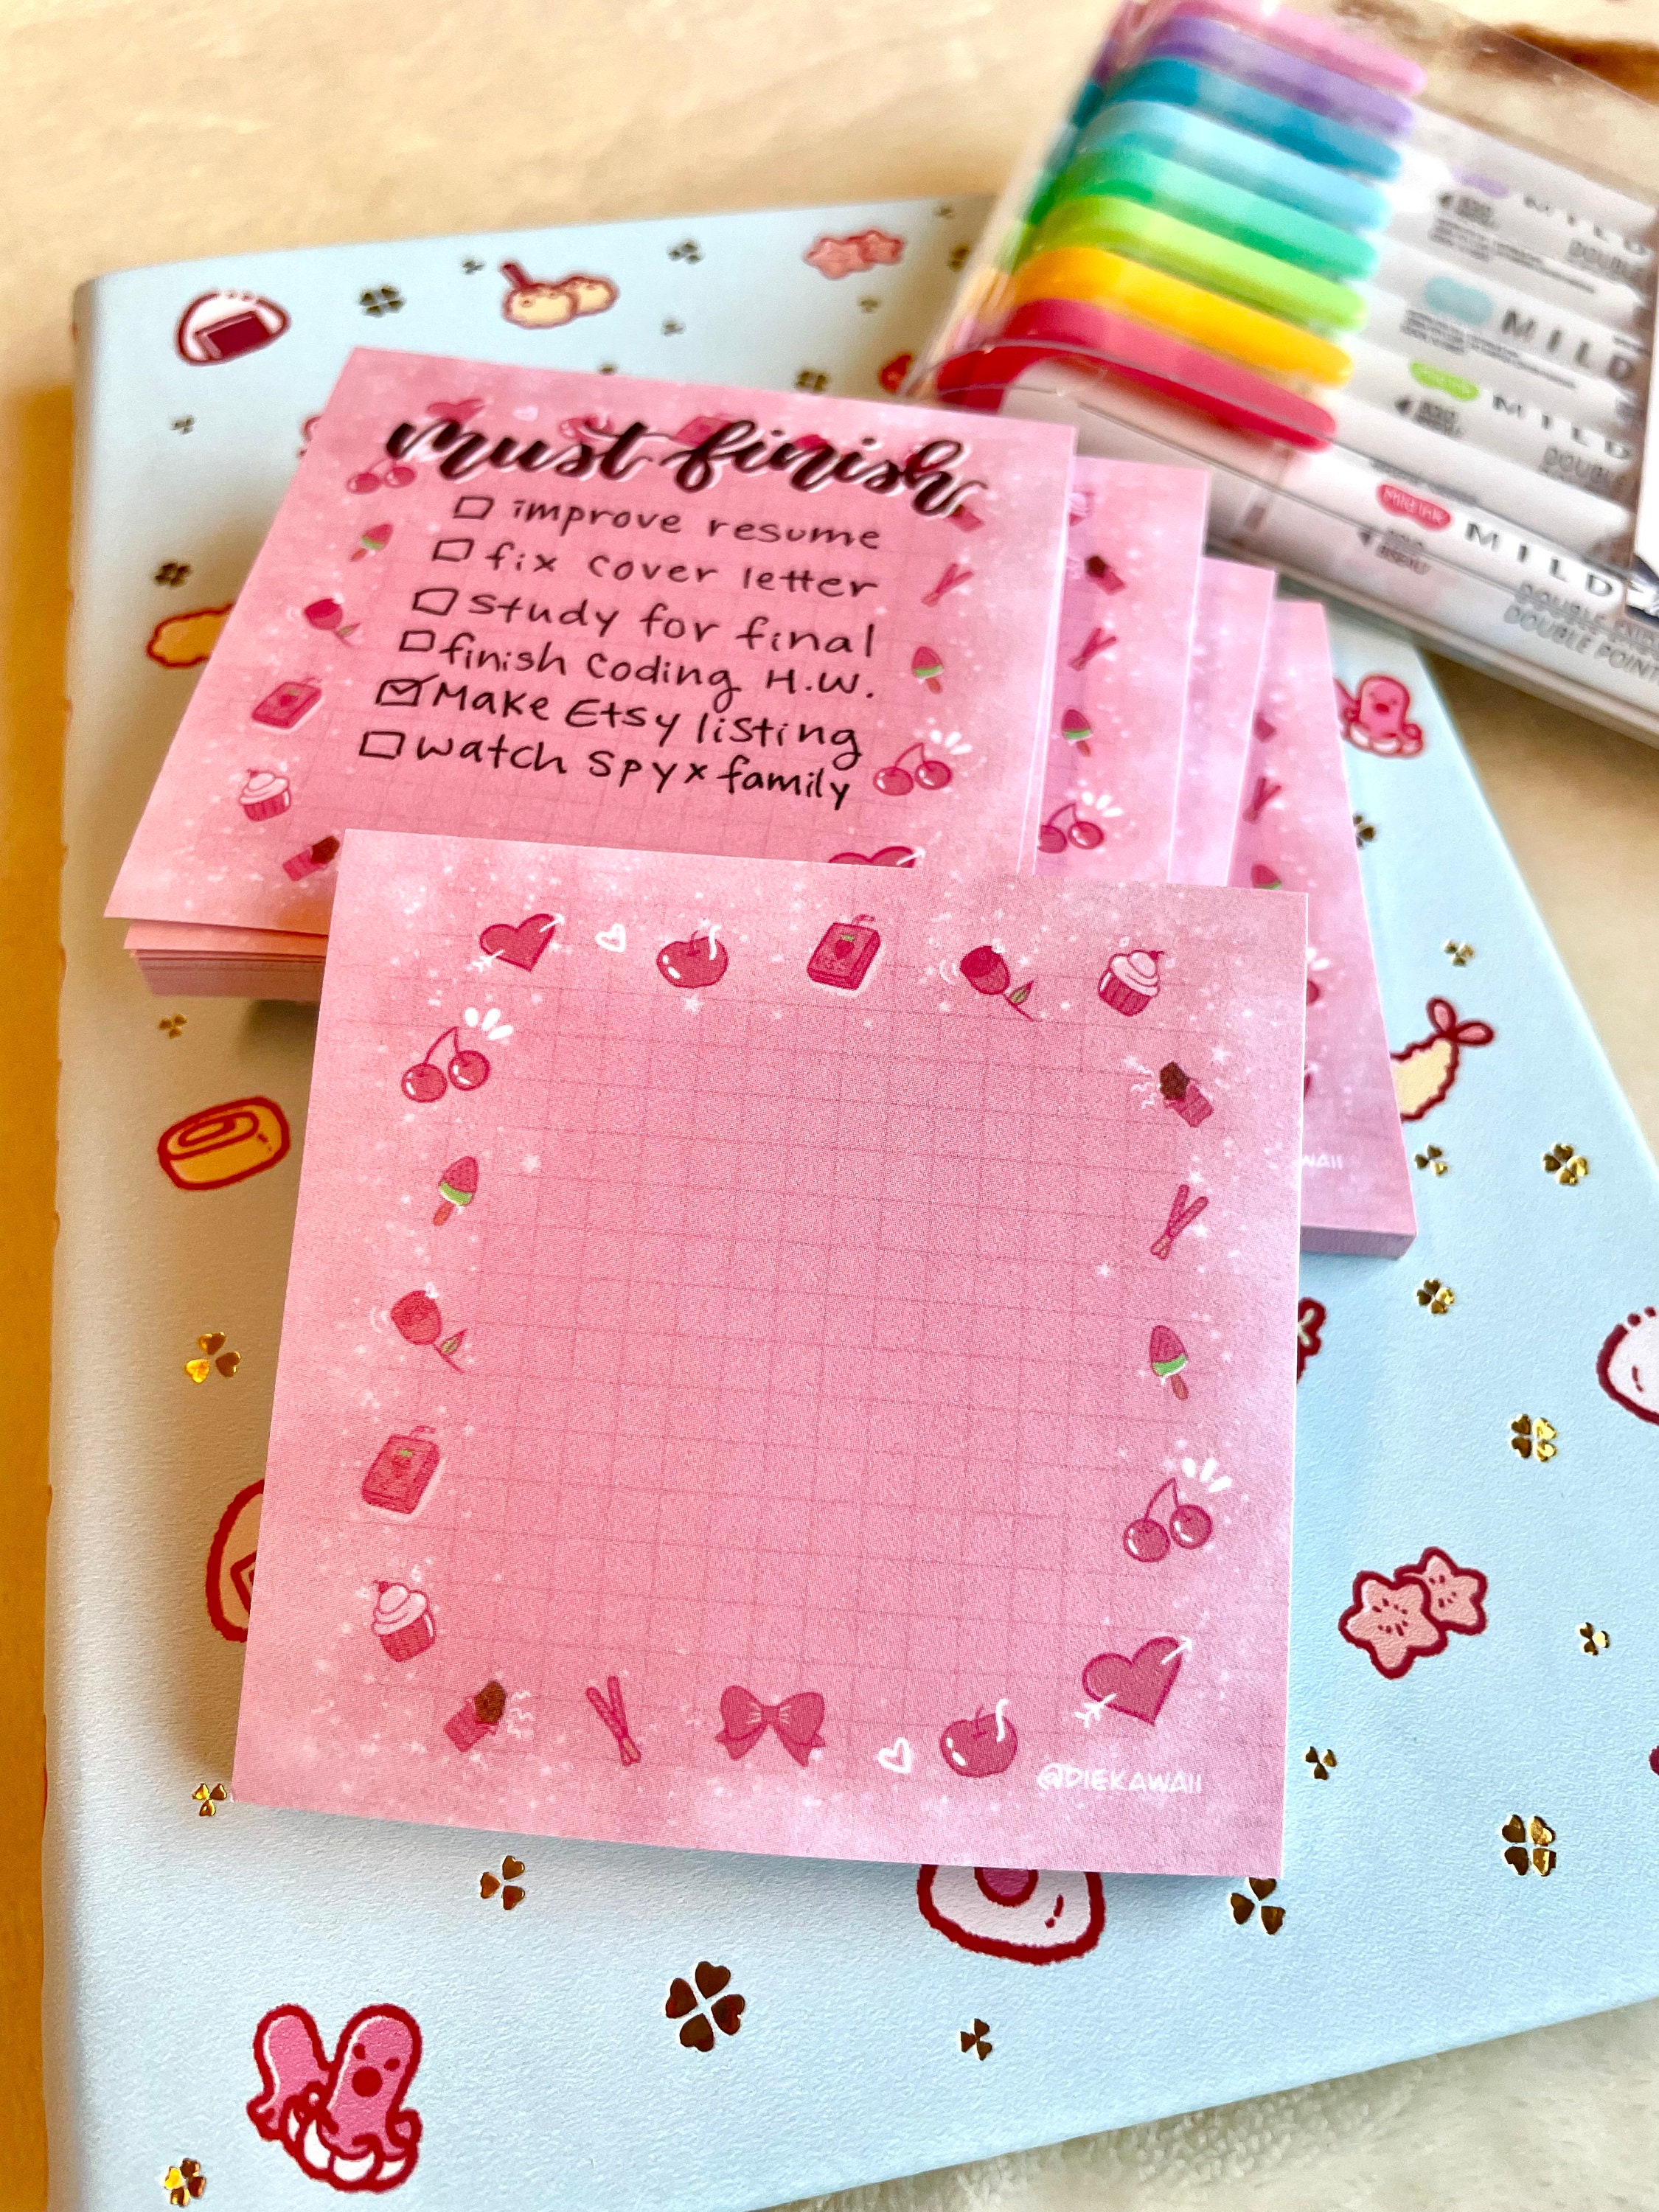 must finish
improve resume
fix cover letter
study for final
finish coding H.W.
Make Etsy listing
watch spy x family
@DIEKAWAII
WAII
MILD
DOUBLE
MILD
MILD
Mildink
MILD
DOUBLE
DOUBLE POINT